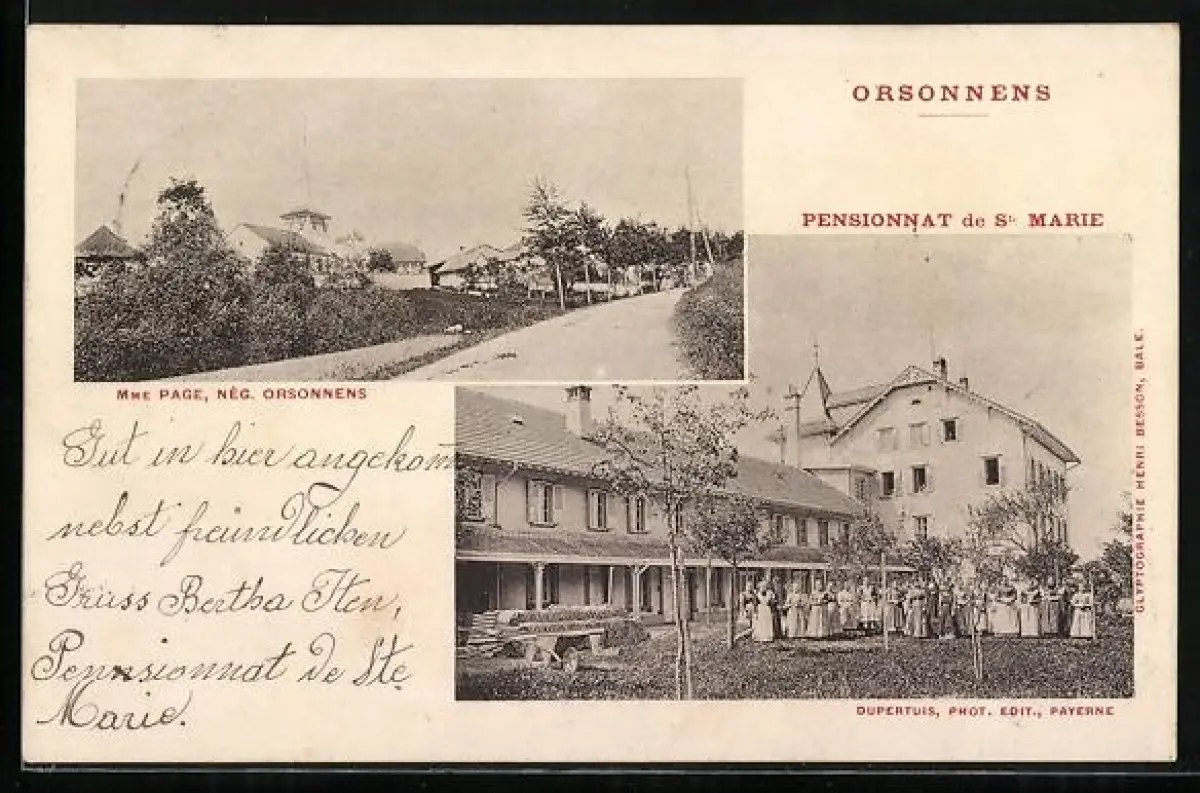 ORSONNENS
PENSIONNAT de Ste MARIE
MME PAGE, NÉG. ORSONNENS
Gut in hier angekom
nebst freundlichen
Grüss Bertha Iten,
Pennsionnat de Ste
Marie.
GLYPTOGRAPHIE HENRI BESSON, BALE.
DUPERTUIS, PHOT. EDIT., PAYERNE